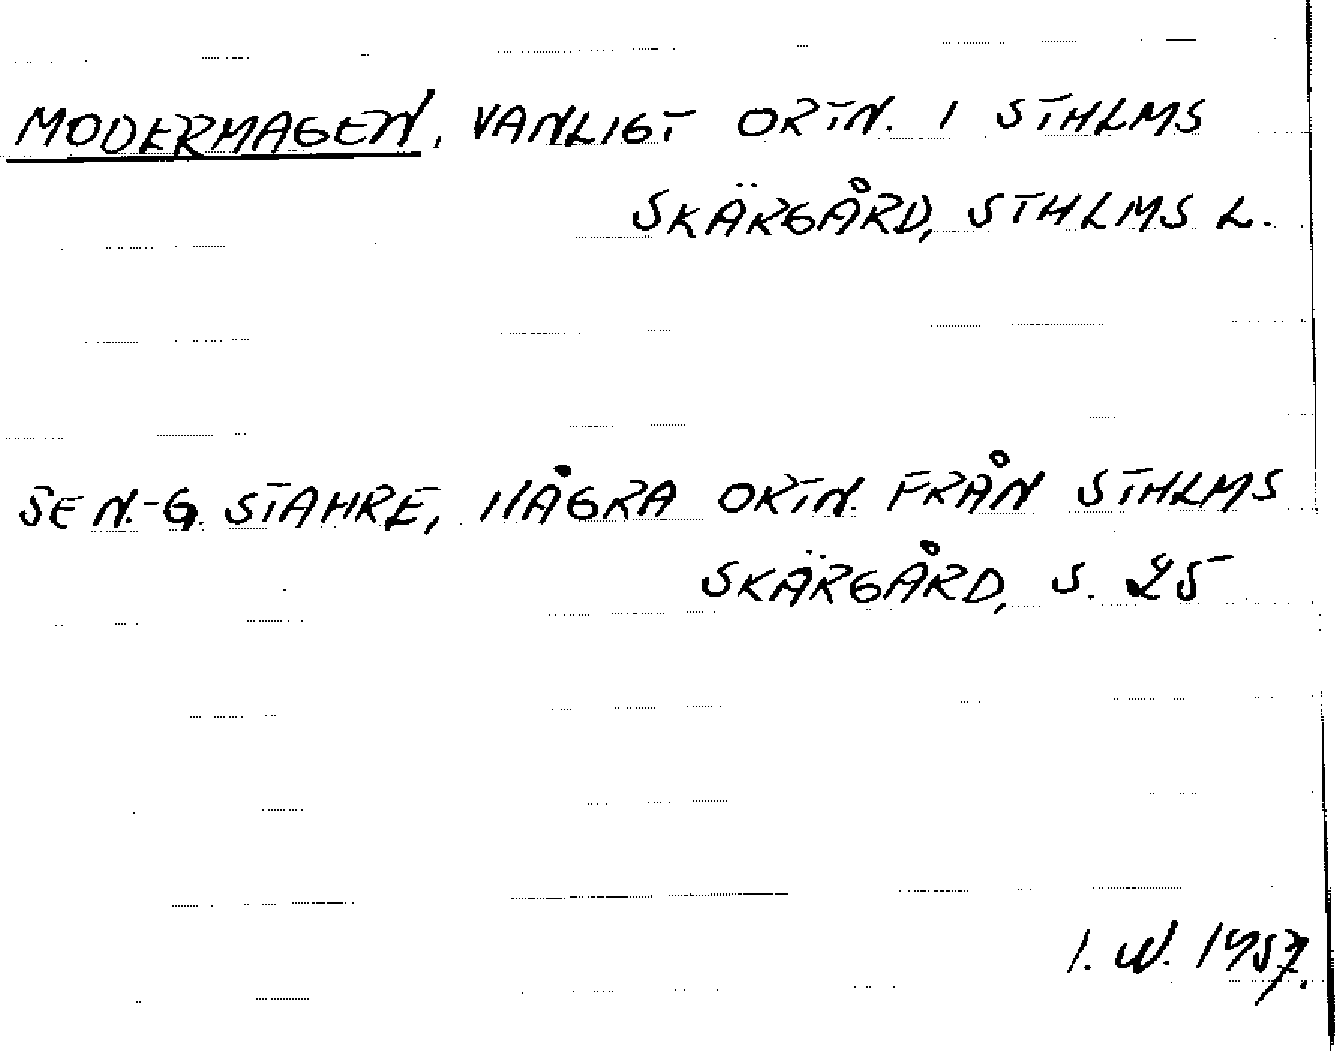 MODERMAGEN, VANLIGT ORTN. I STHLMS
SKÄRGÅRD, STHLMS L.
SE N.-G. STAHRE, NÅGRA ORTN. FRÅN STHLMS
SKÄRGÅRD, S. 25
I. W. 1957.